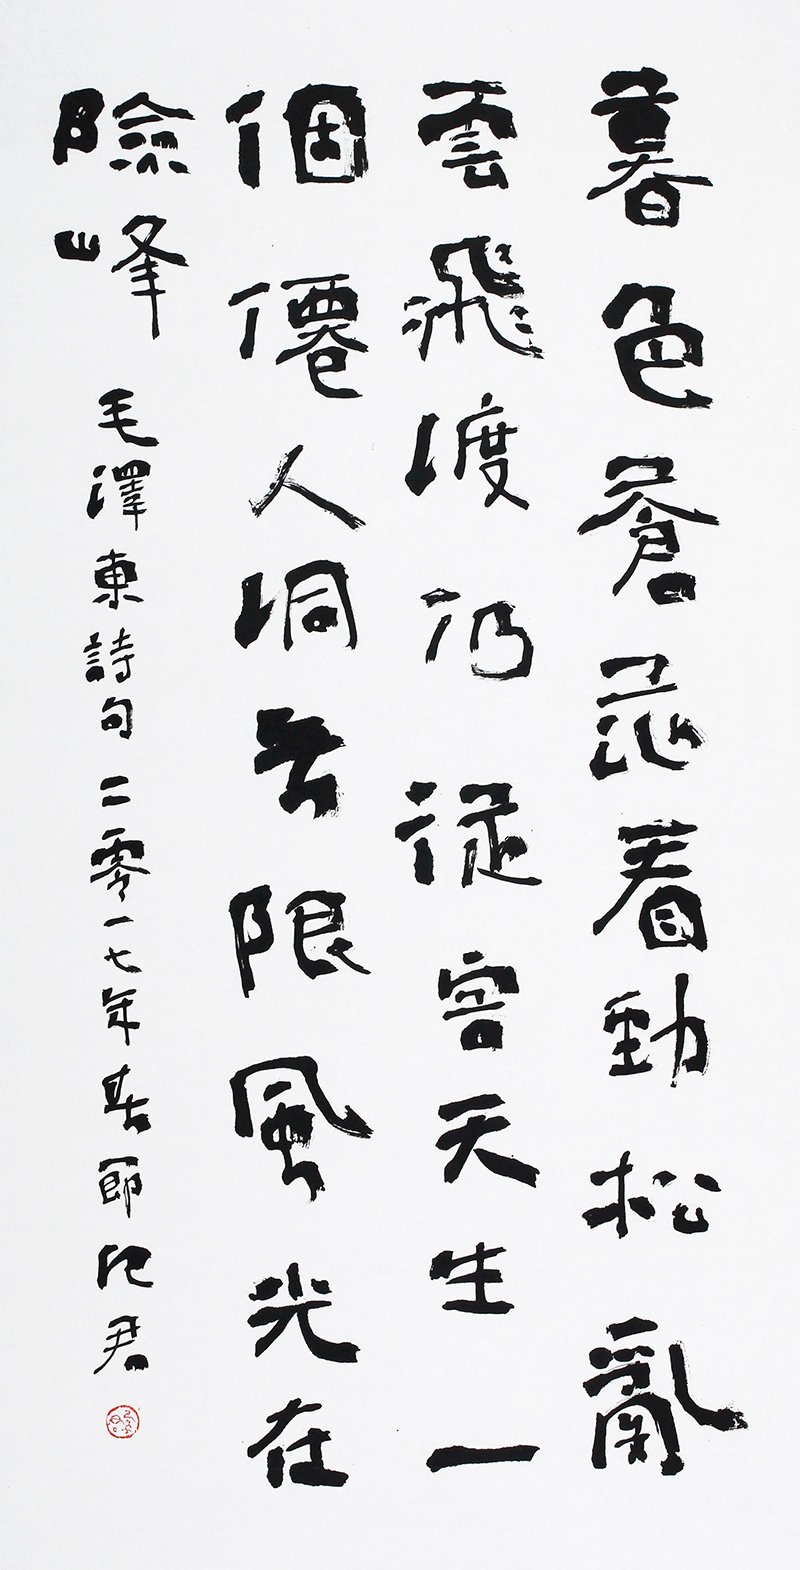 暮色蒼茫看動松亂
雲飛渡仍從容天生一
個僊人洞無限風光在
險峰
毛澤東詩句二零一七年春節君